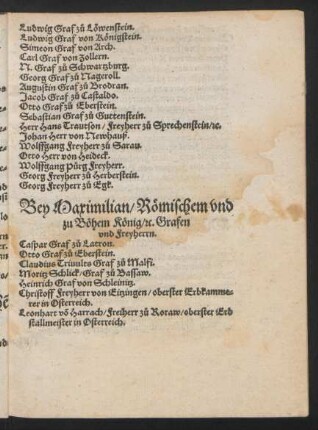 Ludwig Graf zů Löwenstein.
Ludwig Graf von Königstein.
Simeon Graf von Arch.
Carl Graf von Zollern.
N. Graf zů Schwartzburg.
Georg Graf zů Nageroll.
Augustin Graf zů Brodran.
Jacob Graf zů Castaldo.
Otto Graf zů Eberstein.
Sebastian Graf zů Guttenstein.
Herr Hans Trautson / Freyherr zů Sprechenstein / ꝛc.
Johan Herr von Newhauß.
Wolffgang Freyherr zů Sarau.
Otto Herr von Heideck.
Wolffgang Pürg Freyherr.
Georg Freyherr zů Herberstein.
Georg Freyherr zů Egk.
Bey Maximilian / Römischem vnd
zu Böhem König / ꝛc. Grafen
vnd Freyherrn.
Caspar Graf zů Latron.
Otto Graf zů Eberstein.
Claudius Triuults Graf zů Malfi.
Moritz Schlick / Graf zů Bassaw.
Heinrich Graf von Schleinitz.
Christoff Freyherr von Eitzingen / oberster Erbkamme-
rer in Osterreich.
Leonhart vō Harrach / Freiherr zů Roraw / oberster Erb
stallmeister in Osterreich.